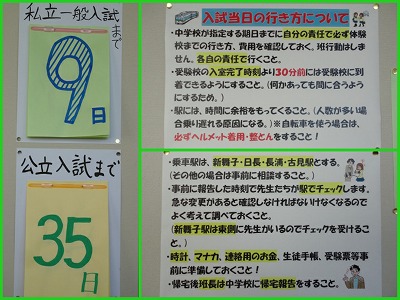 私立一般入試
まで
9
日
公立入試まで
35
日
入試当日の行き方について
・中学校が指定する期日までに自分の責任で必ず体験
校までの行き方、費用を確認しておく、班行動はしま
せん。各自の責任で行くこと。
・受験校の入室完了時刻より30分前には受験校に到
着できるようにすること。(何かあっても間に合うよう
にするため。)
・駅には、時間に余裕をもってくること。(人数が多い場
合乗り遅れる原因になる。)※自転車を使う場合は、
必ずヘルメット着用・整とんをすること!
・乗車駅は、新舞子・日長・長浦・古見駅とする。
(その他の場合は事前に相談すること。)
・事前に報告した時刻で先生たちが駅でチェックします。
急な変更があると確認しなければいけなくなるので
よく考えて調べておくこと。
(新舞子駅は東側に先生がいるのでチェックを受けるこ
と。)
・時計、マナカ、連絡用のお金、生徒手帳、受験票等事
前に準備しておくこと!
・帰宅後班長は中学校に帰宅報告をすること。